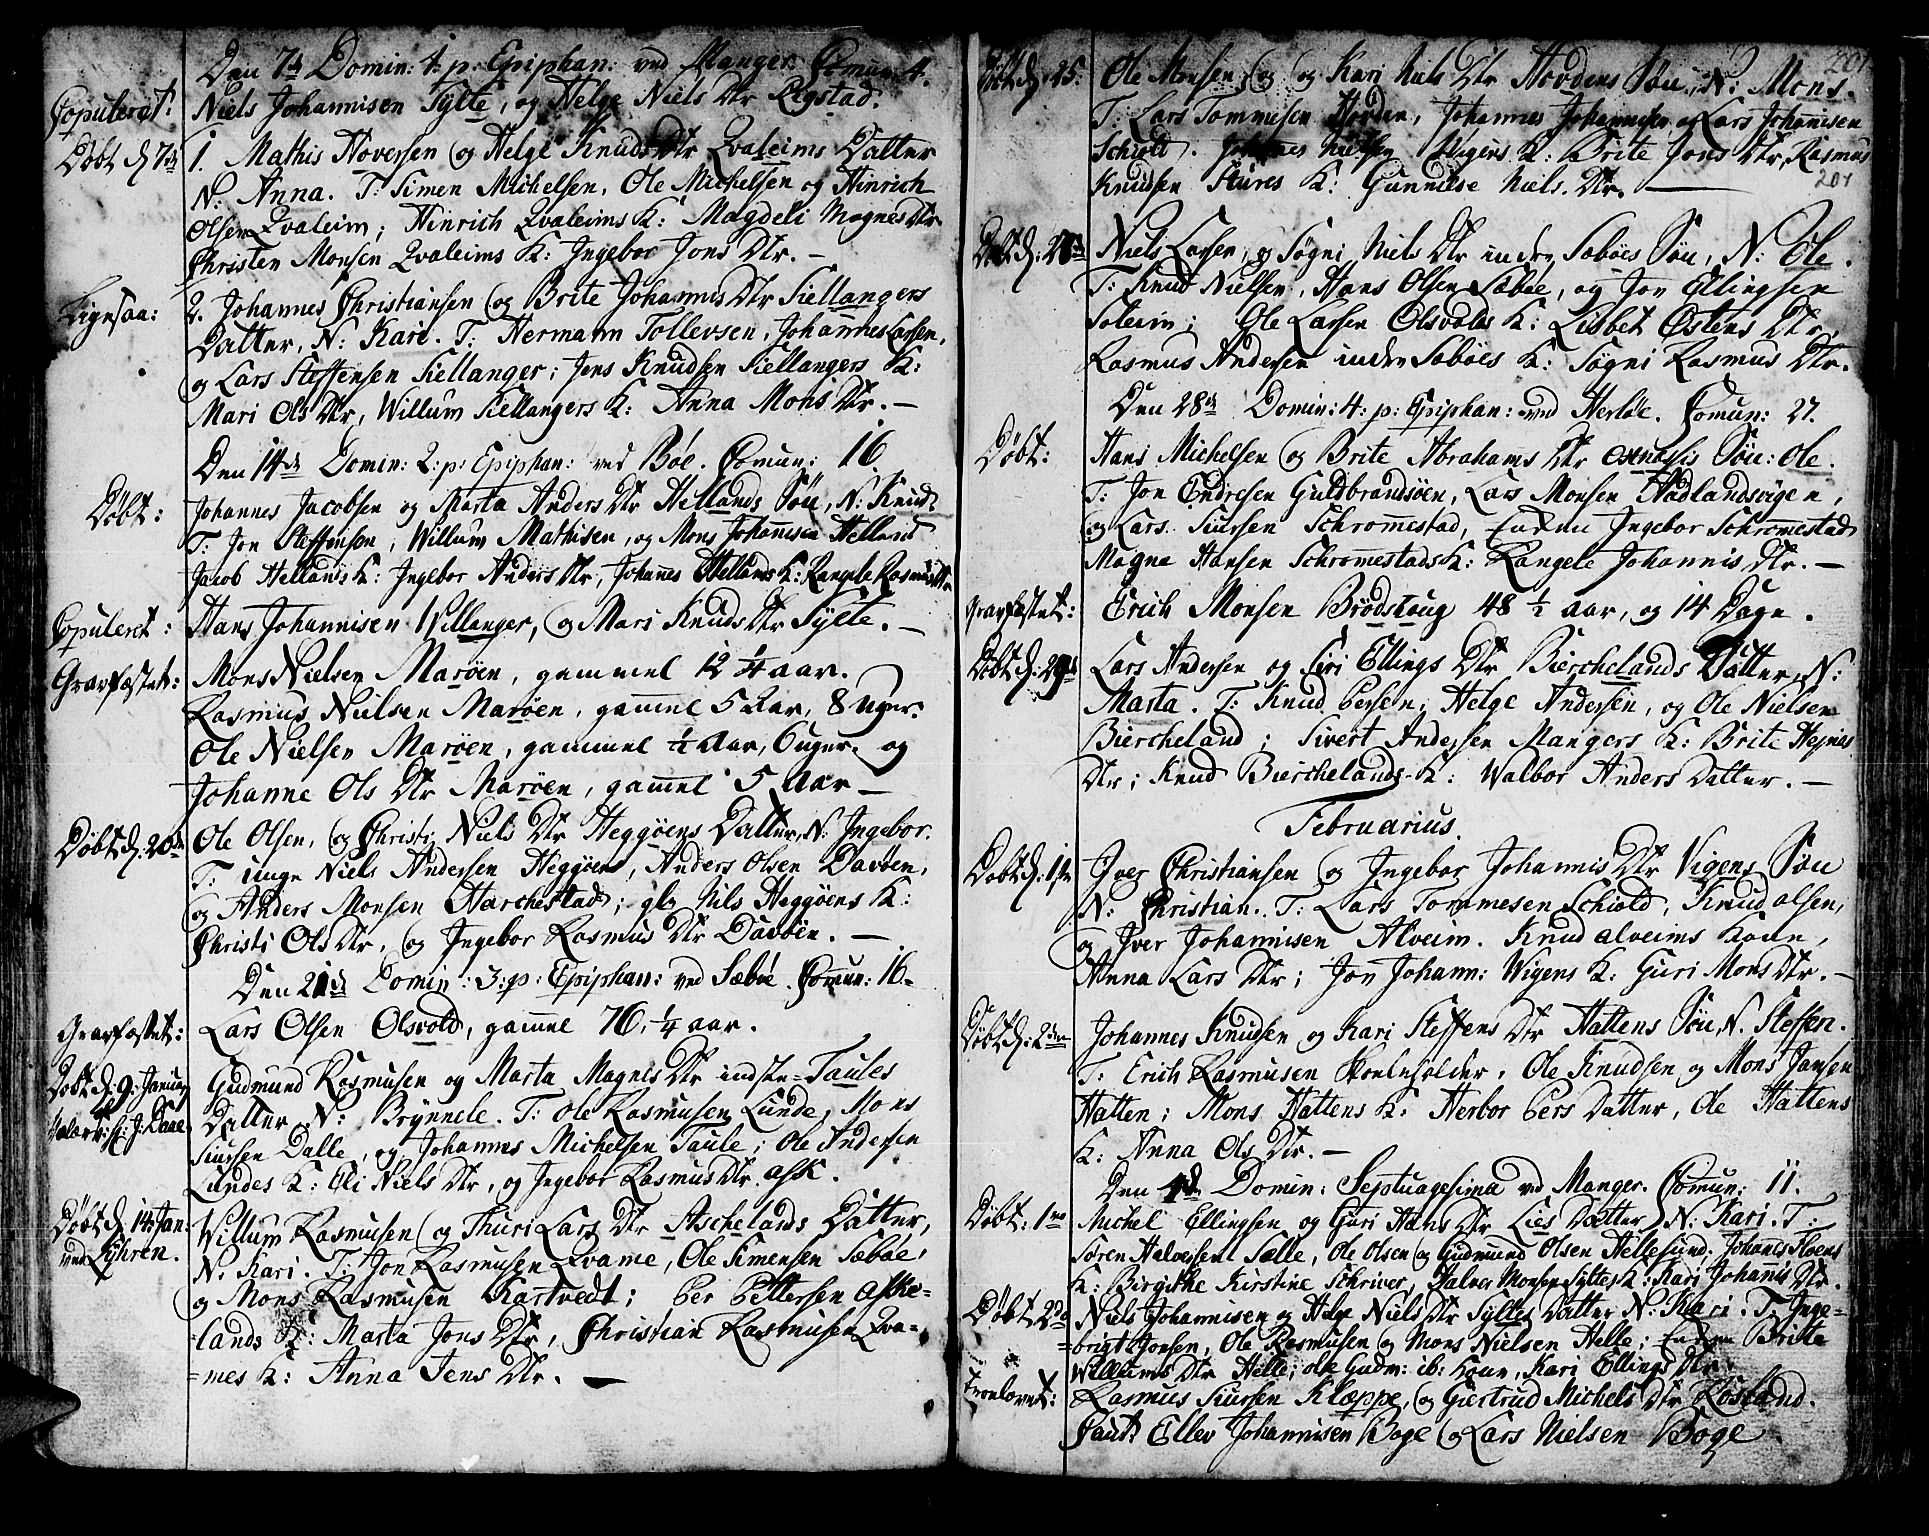 Den 7de Domin: 1. p: Epiphan: ved Manger. Comun: 4.
Copuleret: Niels Johannisen Sylte, og Helge Niels Dtr Rigstad.
Døbt d. 7de 1. Mathis Hoversen og Helge Knuds Dtr Qvaleims Datter
N: Anna. T: Simen Michelsen, Ole Michelsen og Hinrich
Olsen Qvaleim; Hinrich Qvaleims K: Magdeli Magnes Dtr
Christen Monsen Qvaleims K: Ingebor Jons Dtr. —
Ligesaa: 2. Johannes Christiansen og Brite Johannis Dtr Siellangers
Datter, N: Kari. T: Hermann Tollevsen, Johannes Larsen,
og Lars Steffensen Siellanger; Jens Knudsen Siellangers K:
Mari Ols Dtr, Willum Siellangers K: Anna Mons Dtr. —
Den 14de Domin: 2: p: Epiphan: ved Bøe. Comun: 16.
Døbt: Johannes Jacobsen og Marta Anders Dtr Hellands Søn, N: Knud
T: Jon Steffensen, Willum Mathisen, og Mons Johannisen Helland
Jacob Hellands K: Ingebor Anders Dtr, Johannes Hellands K: Rangele Rasmus Dtr
Copuleret: Hans Johannisen Willanger, og Mari Knuds Dtr Sylte. —
Gravfæstet: Mons Nielsen Marøen, gammel 12 1/4 aar.
Rasmus Nielsen Marøen, gammel 5 Aar, 8 uger.
Ole Nielsen Marøen, gammel 1/4 Aar, 6 uger. og
Johanne Ols Dtr Marøen, gammel 5 Aar —
Døbt d: 20de Ole Olsen, og Christi Niels Dtr Heggøens Datter, N: Ingebor.
T: unge Niels Andersen Heggøen, Anders Olsen Davøen,
og Anders Monsen Harchestad; gl: Nils Heggøens K:
Christi Ols Dtr, og Ingebor Rasmus Dtr Davøen. —
Den 21de Domin: 3: p: Epiphan: ved Sæbøe. Comun: 16.
Gravfæstet: Lars Olsen Olsvold, gammel 76 1/4 aar.
Døbt d: 9: Januar Gudmund Rasmusen og Marta Magnes Dtr indste Taules
J: Daae Datter N: Brynnele. T: Ole Rasmusen Lunde, Mons
Siursen Dalle, og Johannes Michelsen Taule; Ole Andersen
Lundes K: Eli Niels Dtr, og Ingebor Rasmus Dtr Ask.
Døbt d. 14: Jan: Willum Rasmusen og Thuri Lars Dtr Aschelands Datter,
ved Lyhren. N: Kari. T: Jon Rasmusen Qvame, Ole Simensen Sæbøe,
og Mons Rasmusen Kartvedt; Per Pettersen Aske-
-lands K: Marta Jons Dtr, Christian Rasmusen Qva-
-mes K: Anna Jens Dtr. —
201
Døbt d: 25: Ole Monsen og Kari Niels Dtr Hordens Søn, N: Mons.
T: Lars Tommesen Horden, Johannes Johannisen og Lars Johanisen
Schiold. Johannes Nielsen Wigens K: Brite Jons Dtr, Rasmus
Knudsen Stures K: Gunnilde Niels. Dtr. —
201
Døbt d: Niels Larsen, og Søgni Niels Dtr indre Sæbøes Søn, N: Ole.
T: Knud Nielsen, Hans Olsen Sæbøe, og Jon Ellingsen
Soleim; Ole Larsen Olsvolds K: Lisbet Østens Dtr,
Rasmus Andersen indre Sæbøes K: Søgni Rasmus Dtr.
Den 28de Domin: 4: p: Epiphan: ved Herløe. Comun: 27.
Døbt: Hans Michelsen og Brite Abrahams Dtr Søn: Ole.
T: Jon Endresen Guldbrandsøen, Lars Monsen Hadlandsvigen,
og Lars Siursen Schromestad, Enken Ingebor Schromestad
Magne Hansen Schromestads K: Rangele Johannis Dtr. —
Gravfæstet: Erich Monsen Brødstoug 48 1/2 aar, og 14 Dage.
Døbt d: 29de Lars Andersen og Siri Ellings Dtr Bierchelands Datter, N:
Marta. T: Knud Persen, Helge Andersen, og Ole Nielsen
Biercheland; Sivert Andersen Mangers K: Brite Hejnes
Dtr; Knud Bierchelands K: Walbor Anders Datter. —
Februarius.
Døbt d: 1ste Iver Christiansen og Ingebor Johannis Dtr Vigens Søn
N: Christian. T: Lars Tommesen Schiold, Knud Olsen,
og Iver Johannisen Alveim. Knud Alveims Kone,
Anna Lars Dtr; Jon Johann: Wigens K: Guri Mons Dtr. —
Døbt d: 2den Johannes Knudsen og Kari Steffens Dtr Hattens Søn, N. Steffen.
T: Erich Rasmusen Skoleholder, Ole Knudsen og Mons Jansen
Hatten; Mons Hattens K: Herbor Pers Datter, Ole Hattens
K: Anna Ols Dtr. —
Den 4de Domin: Septuagesima ved Manger. Comun: 11.
Døbt: 1mo Michel Ellingsen og Guri Hans Dtr Lies Datter N: Kari. T:
Søren Halversen Sælle, Ole Olsen og Gudmund Olsen Hellesund; Johannes Floens
K: Birgithe Kirstine Schriver, Halver Monsen Syltes K: Kari Johannis Dtr.
Døbt 2do Niels Johannisen og Helge Niels Dtr Syltes Datter N: Kari. T: Inge-
-brigt Jonsen, Ole Rasmusen og Mons Nielsen Helle; Enken Britha
Willums Dtr Helle; Ole Gudm: ib: Kone, Kari Ellings Dtr.
Trolovet: Rasmus Siursen Klæppe, og Giertrud Michels Dtr Røsland.
Caut: Ellev Johannisen Boge og Lars Nielsen Boge